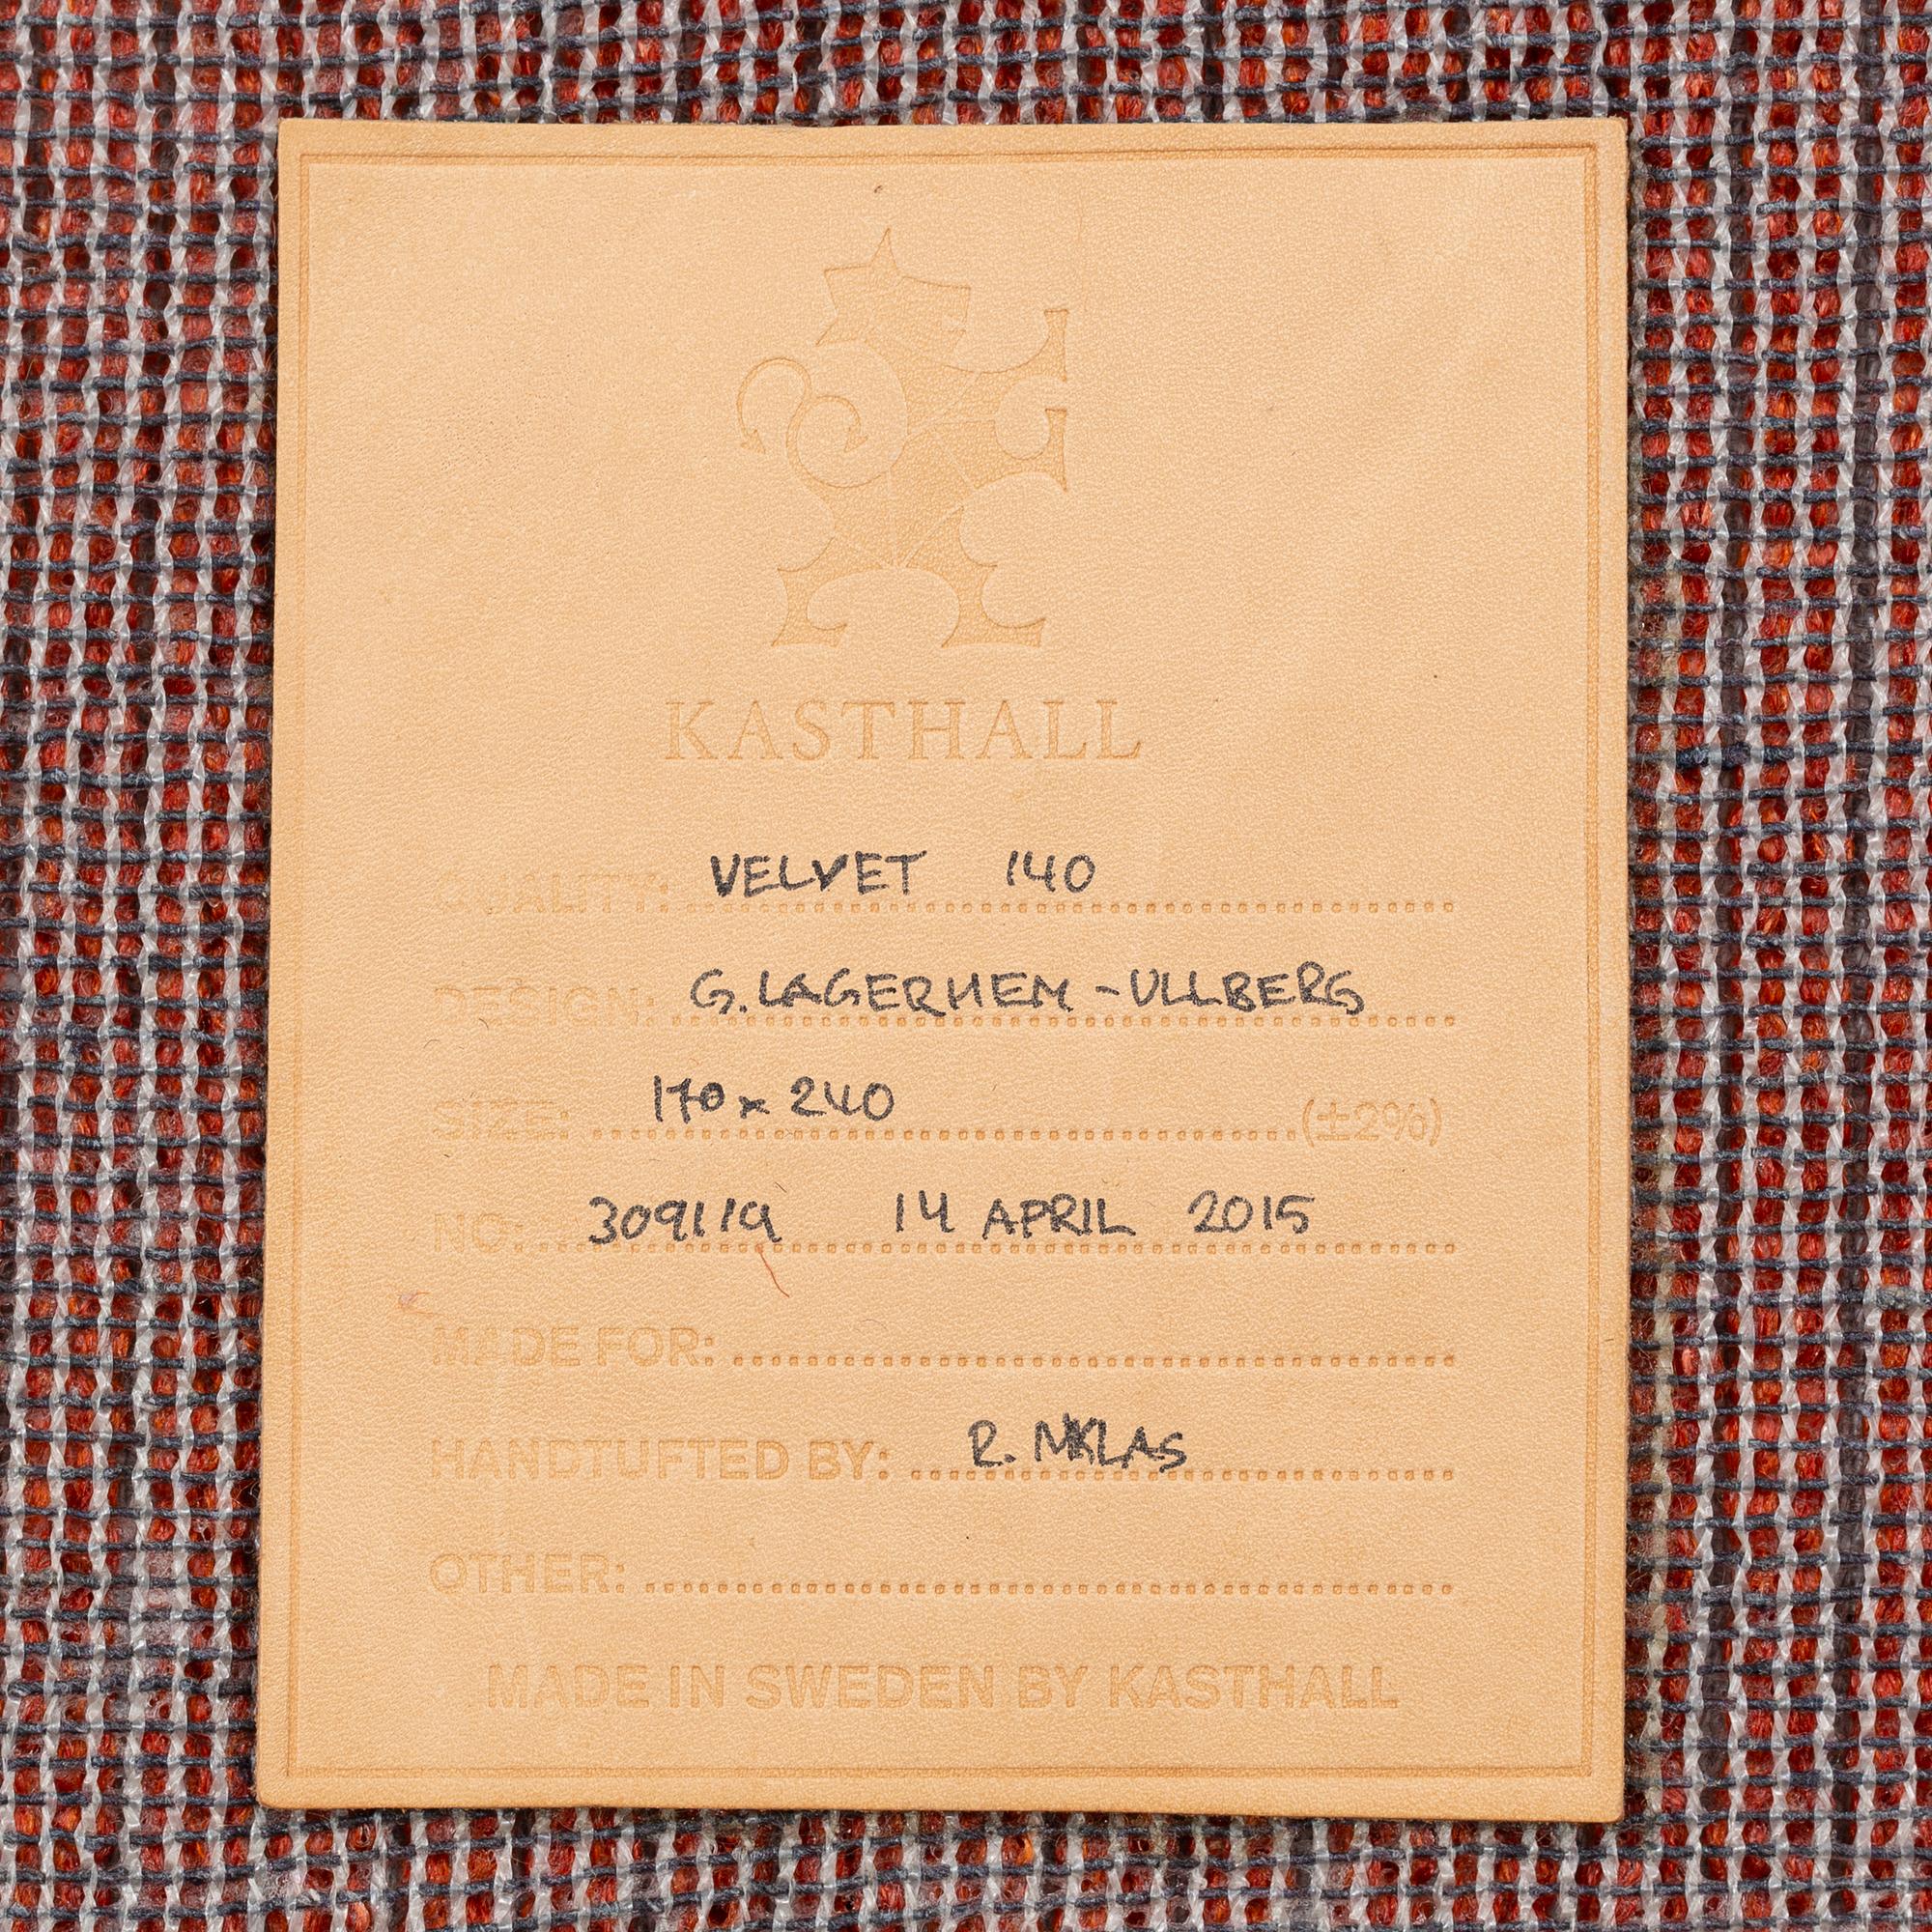 KASTHALL
QUALITY: VELVET 140
DESIGN: G. LAGERHEM - ULLBERG
SIZE: 170 x 240 (±2%)
NO: 309119 14 APRIL 2015
MADE FOR:
HANDTUFTED BY: R.
OTHER:
MADE IN SWEDEN BY KASTHALL